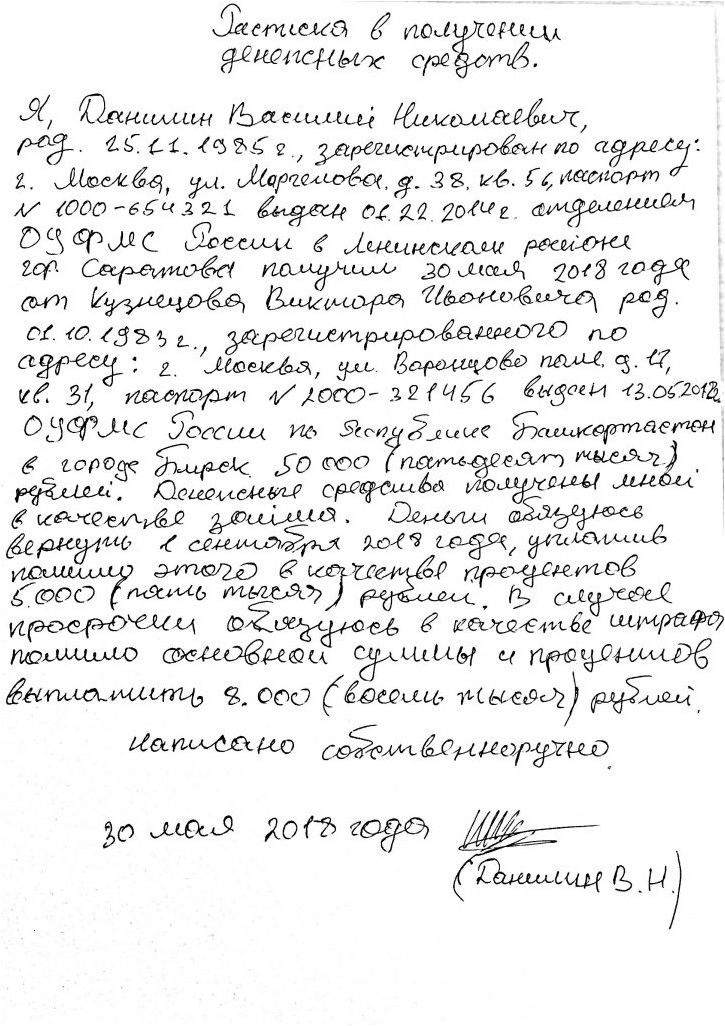 Расписка в получении
денежных средств.
Я, Данилин Василий Николаевич,
род. 25.11.1985 г., зарегистрирован по адресу:
г. Москва, ул. Маргелова, д. 38, кв. 56, паспорт
N 1000-654321 выдан 01.22.2014 г. отделением
ОУФМС России в Ленинском районе
гор. Саратова получил 30 мая 2018 года
от Кузнецова Виктора Ивановича род.
01.10.1983 г., зарегистрированного по
адресу: г. Москва, ул. Воронцово поле, д. 17,
кв. 31, паспорт N 2000-321456 выдан 13.05.2012
ОУФМС России по Республике Башкортастан
в городе Бирск 50 000 (пятьдесят тысяч)
рублей. Денежные средства получены мной
в качестве займа. Деньги обязуюсь
вернуть 1 сентября 2018 года, уплатив
помимо этого в качестве процентов
5.000 (пять тысяч) рублей. В случае
просрочки обязуюсь в качестве штрафа
помимо основной суммы и процентов
выплатить 8.000 (восемь тысяч) рублей.
Написано собственноручно.
30 мая 2018 года
(Данилин В.Н.)